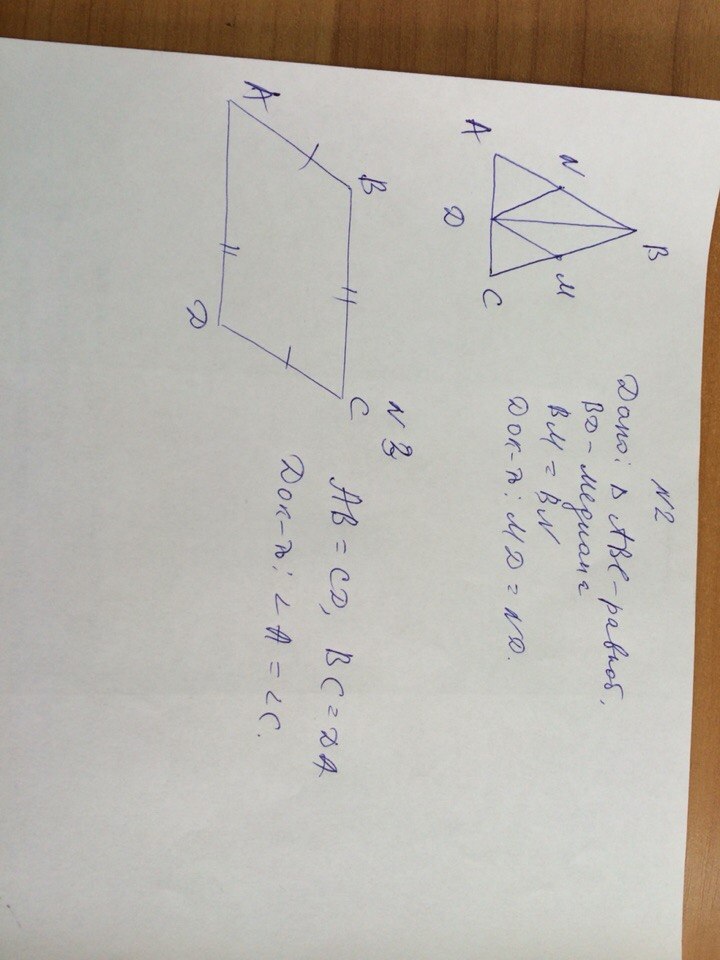 N2
Дано: △ ABC - равноб,
BD - медиана
BM = BN
Док-ть: MD = ND.
A
N
B
D
M
C
N 3
AB = CD, BC = DA
Док-ть: ∠A = ∠C.
A
B
D
C